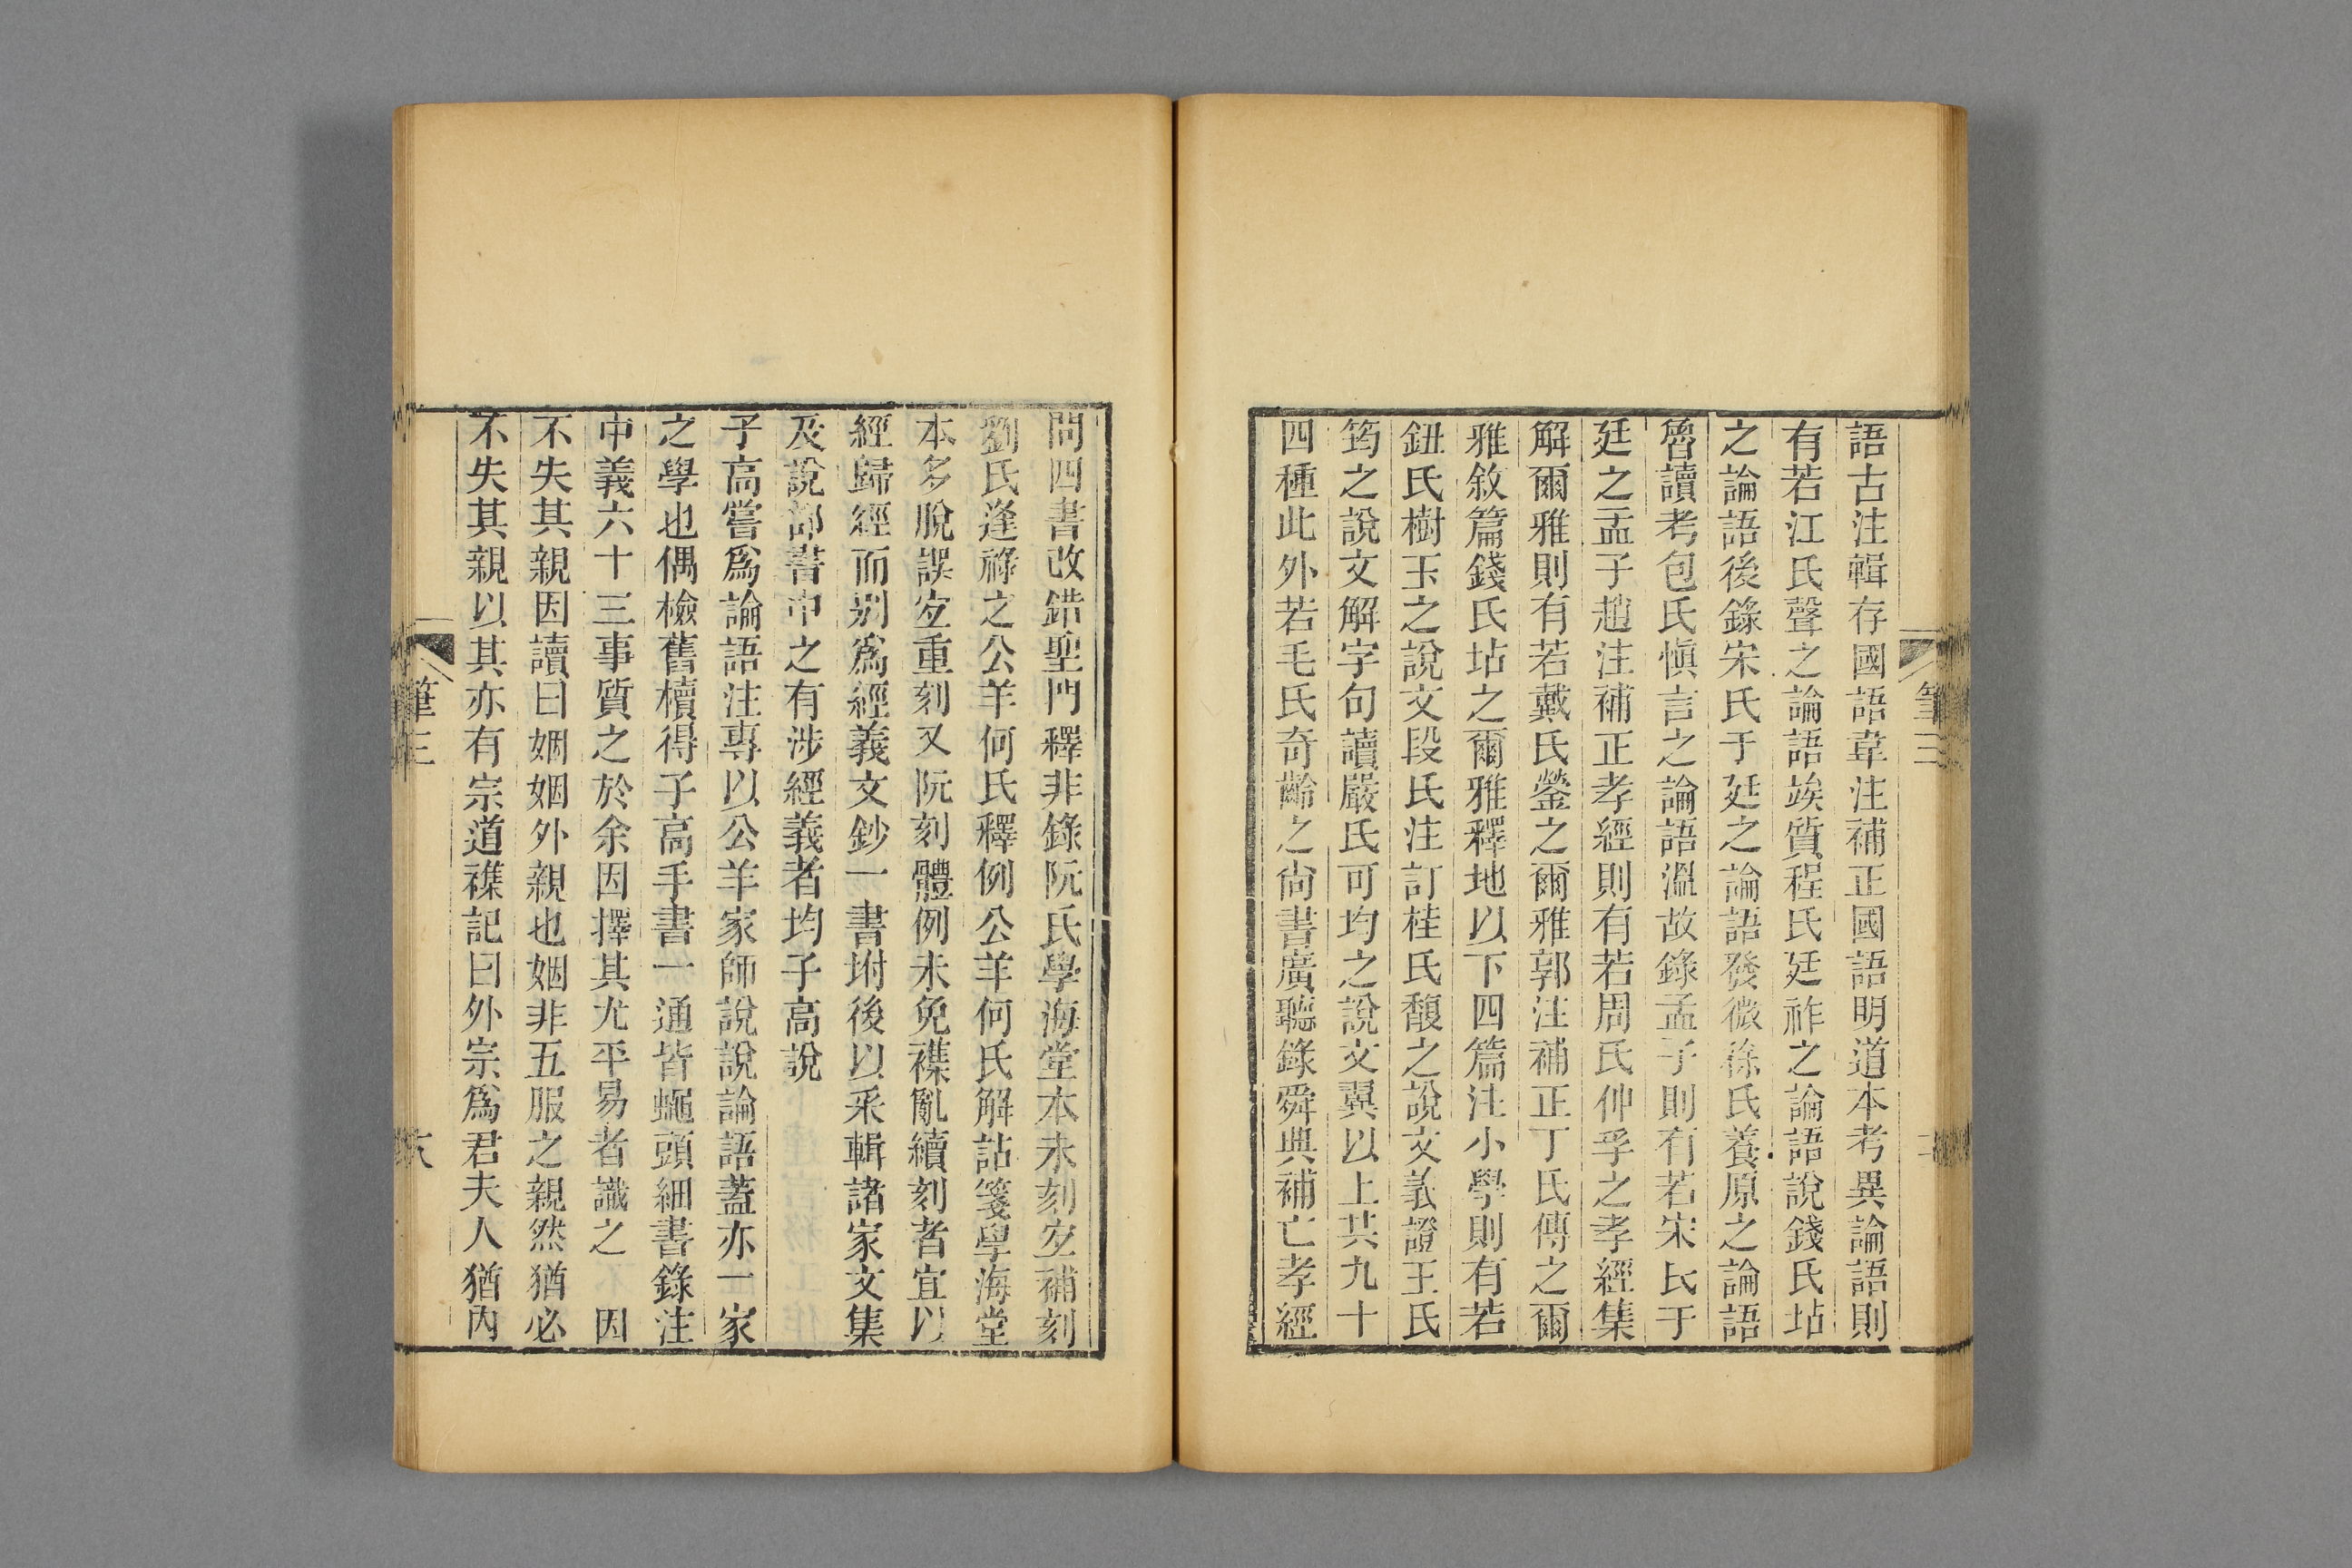 語古注輯存國語韋注補正國語明道本考異論語則
有若江氏聲之論語竢質程氏廷祚之論語說錢氏坫
之論語後錄宋氏于廷之論語發微徐氏養原之論語
魯讀考包氏愼言之論語溫故錄孟子則有若宋氏于
廷之孟子趙注補正孝經則有若周氏仲孚之孝經集
解爾雅則有若戴氏鎣之爾雅郭注補正丁氏傳之爾
雅敘篇錢氏坫之爾雅釋地以下四篇注小學則有若
鈕氏樹玉之說文段氏注訂桂氏馥之說文義證王氏
筠之說文解字句讀嚴氏可均之說文翼以上共九十
四種此外若毛氏奇齡之尙書廣聽錄舜典補亡孝經
筆三
問四書改錯聖門釋非錄阮氏學海堂本未刻宐補刻
劉氏逢祿之公羊何氏釋例公羊何氏解詁箋學海堂
本多脫誤宐重刻又阮刻體例未免襍亂續刻者宜以
經歸經而别爲經義文鈔一書坿後以采輯諸家文集
及說部書中之有涉經義者均子高說
子高嘗爲論語注專以公羊家師說說論語蓋亦一家
之學也偶檢舊櫝得子高手書一通皆蠅頭細書錄注
中義六十三事質之於余因擇其尤平易者識之　因
不失其親因讀曰姻姻外親也姻非五服之親然猶必
不失其親以其亦有宗道襍記曰外宗爲君夫人猶內
筆三